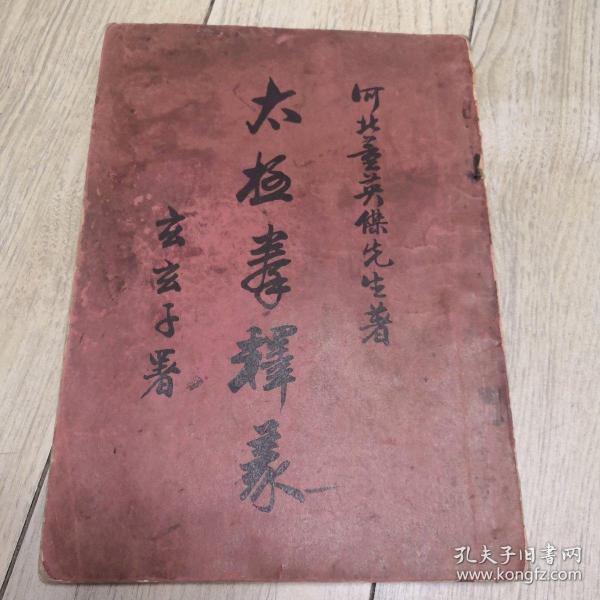 河北董英傑先生著
太极拳釋義
玄玄子署
孔夫子旧书网
www.kongfz.com